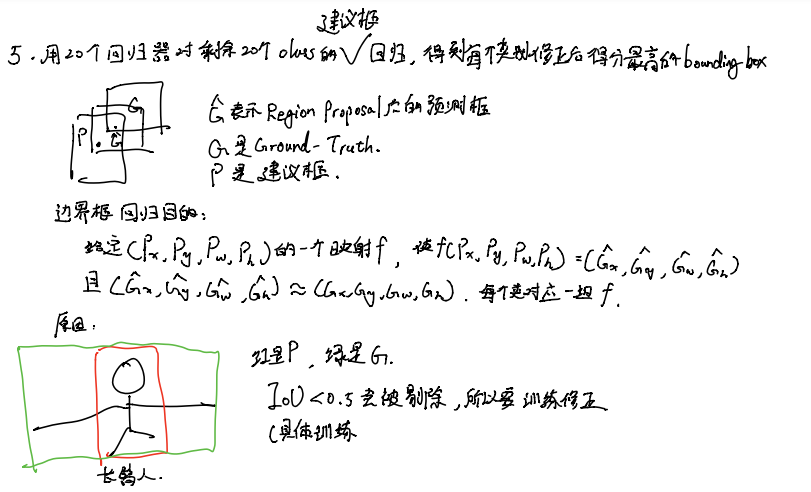 建议框
5. 用20个回归器对剩余20个class的√回归, 得到每个类别修正后得分最高的bounding box
G
P
Ĝ
Ĝ表示Region Proposal后的预测框
G是Ground-Truth.
P是建议框.
边界框回归目的:
给定(Px, Py, Pw, Ph)的一个映射f, 使f(Px, Py, Pw, Ph) = (Ĝx, Ĝy, Ĝw, Ĝh)
且(Ĝx, Ĝy, Ĝw, Ĝh) ≈ (Gx, Gy, Gw, Gh). 每个类对应一组f.
原因:
红是P, 绿是G.
IoU<0.5 会被剔除, 所以要训练修正
(具体训练
长臂人.